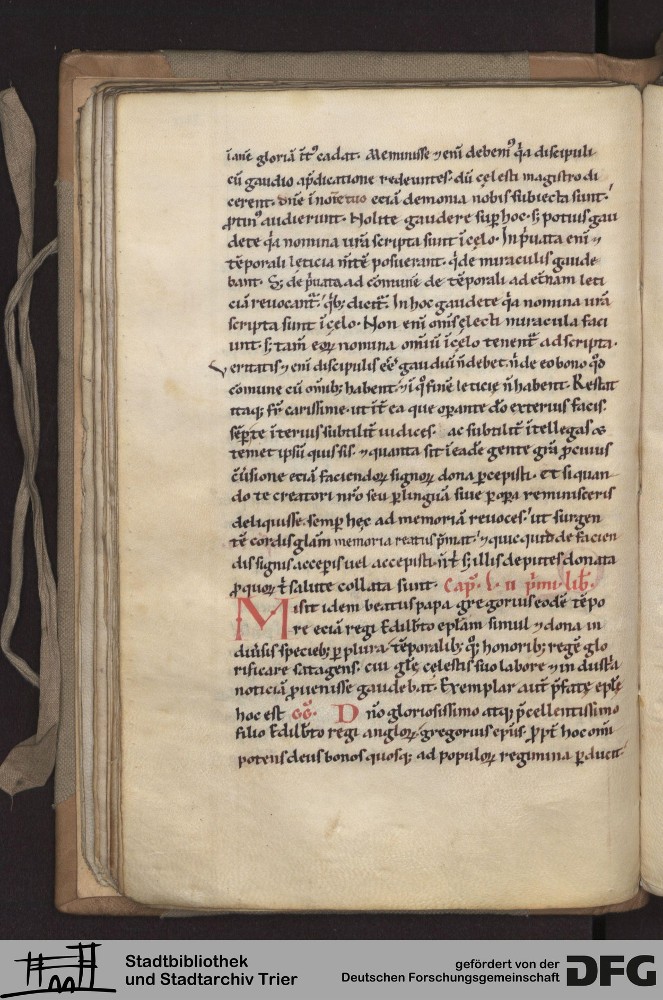 iane gloria īt᷒ cadat. Meminisse ⁊ eni debem᷒ q̇a discipuli
cū gaudio ap̄dicatione redeuntes. dū cęlesti magistro di
cerent. dn̄e i noīe tuo eciā demonia nobis subiecta sunt.
p̱tin᷒ audierunt. Nolite gaudere sup̱ hoc. s; potius gau
dete q̇a nomina urā scripta sunt i cęlo. In ṗuata eni ⁊
tēporali leticia m̄tē posuerant. q̇ de miraculis gaude
bant. S; de ṗuata ad cōmunē de tēporali ad et̄nam leti
ciā reuocant᷑. q̇b; dicit᷑. In hoc gaudete q̇a nomina urā
scripta sunt i cęlo. Non eni om̄s ęlecti miracula faci
unt. s; tam̄ eoꝝ nomina omiū i cęlo tenent᷑ adscripta.
Veritatis ⁊ eni discipulis ee᷒ gaudiū n̄ debet. n̄ de eo bono q̇d
cōmune cū om̄ib; habent. ⁊ i q̇ finē leticię n̄ habent. Restat
itaq; fr̄ carissime. ut it᷑ ea que oꝑante dō exterius facis.
sēp̱ te iterius subtilit᷑ iudices. ac subtilit᷑ itellegas &
temet ipsū quis sis. ⁊ quanta sit i eadē gente grā. p̱ cuius
c̄uersione eciā faciendoꝝ signoꝝ dona ꝑcepisti. et si quan
do te creatori nr̄o seu ꝑ linguā siue ꝑ oꝑa reminisceris
deliquisse. semꝑ hęc ad memoriā reuoces. ut surgen
tē cordis glām memoria reatus p̄mat. ⁊ quicquid de facien
dis signis acceꝑis uel accepisti. n̄ t᷑ s; illis deputes donata
p̱ quoꝝ t᷑ salute collata sunt. Cap᷒. L. II ṗmi. lib.
Misit idem beatus papa gregorius eodē tēpo
re eciā regi Edilb̄to epłam simul ⁊ dona in
diūsis specieb; ꝑ plura. tēporalib; q;. honorib; regē glo
rificare satagens. cui glē cęlestis suo labore ⁊ industa
noticiā ꝓuenisse gaudebat. Exemplar aut̄ p̄fatę epłę
hoc est GG. Dn̄o gloriosissimo atq; p̄cellentissimo
filio Edilb̄to regi angloꝝ. gregorius ep̄us. ꝓpt᷑ hoc om̄i
potens deus bonos quosq; ad populoꝝ regimina ꝑducit.
Stadtbibliothek
und Stadtarchiv Trier
gefördert von der
Deutschen Forschungsgemeinschaft
DFG